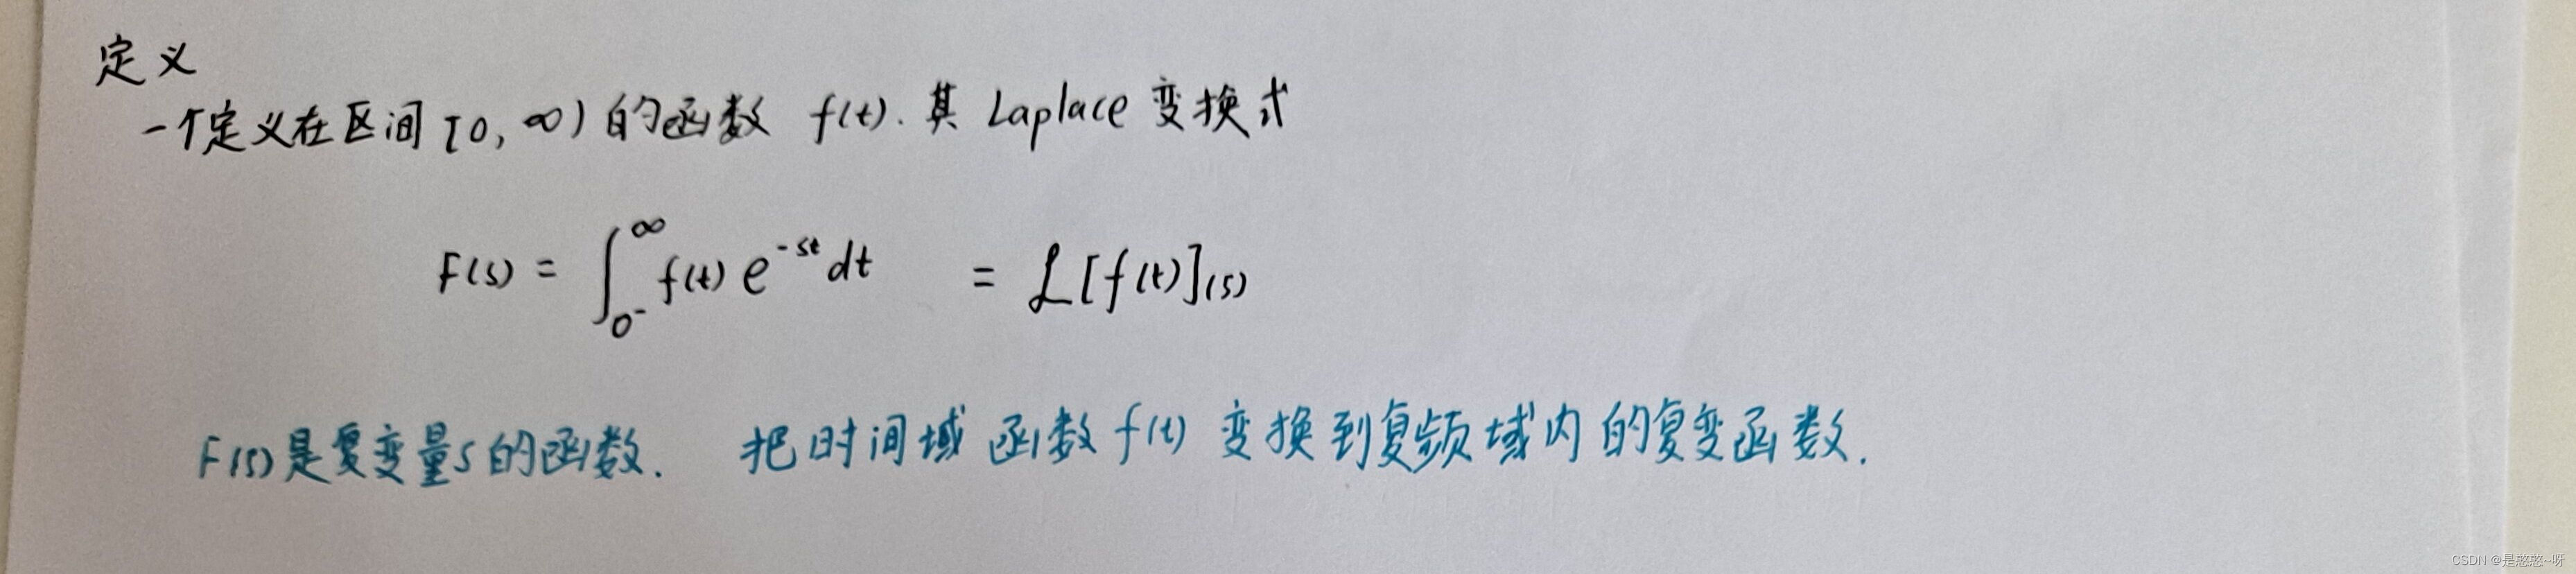 定义
一个定义在区间 [0, ∞) 的函数 f(t). 其 Laplace 变换式
F(s) = ∫_{0^-}^{∞} f(t) e^{-st} dt = ℒ[f(t)](s)
F(s) 是复变量s的函数. 把时间域函数 f(t) 变换到复频域内的复变函数.
CSDN @是憨憨~呀